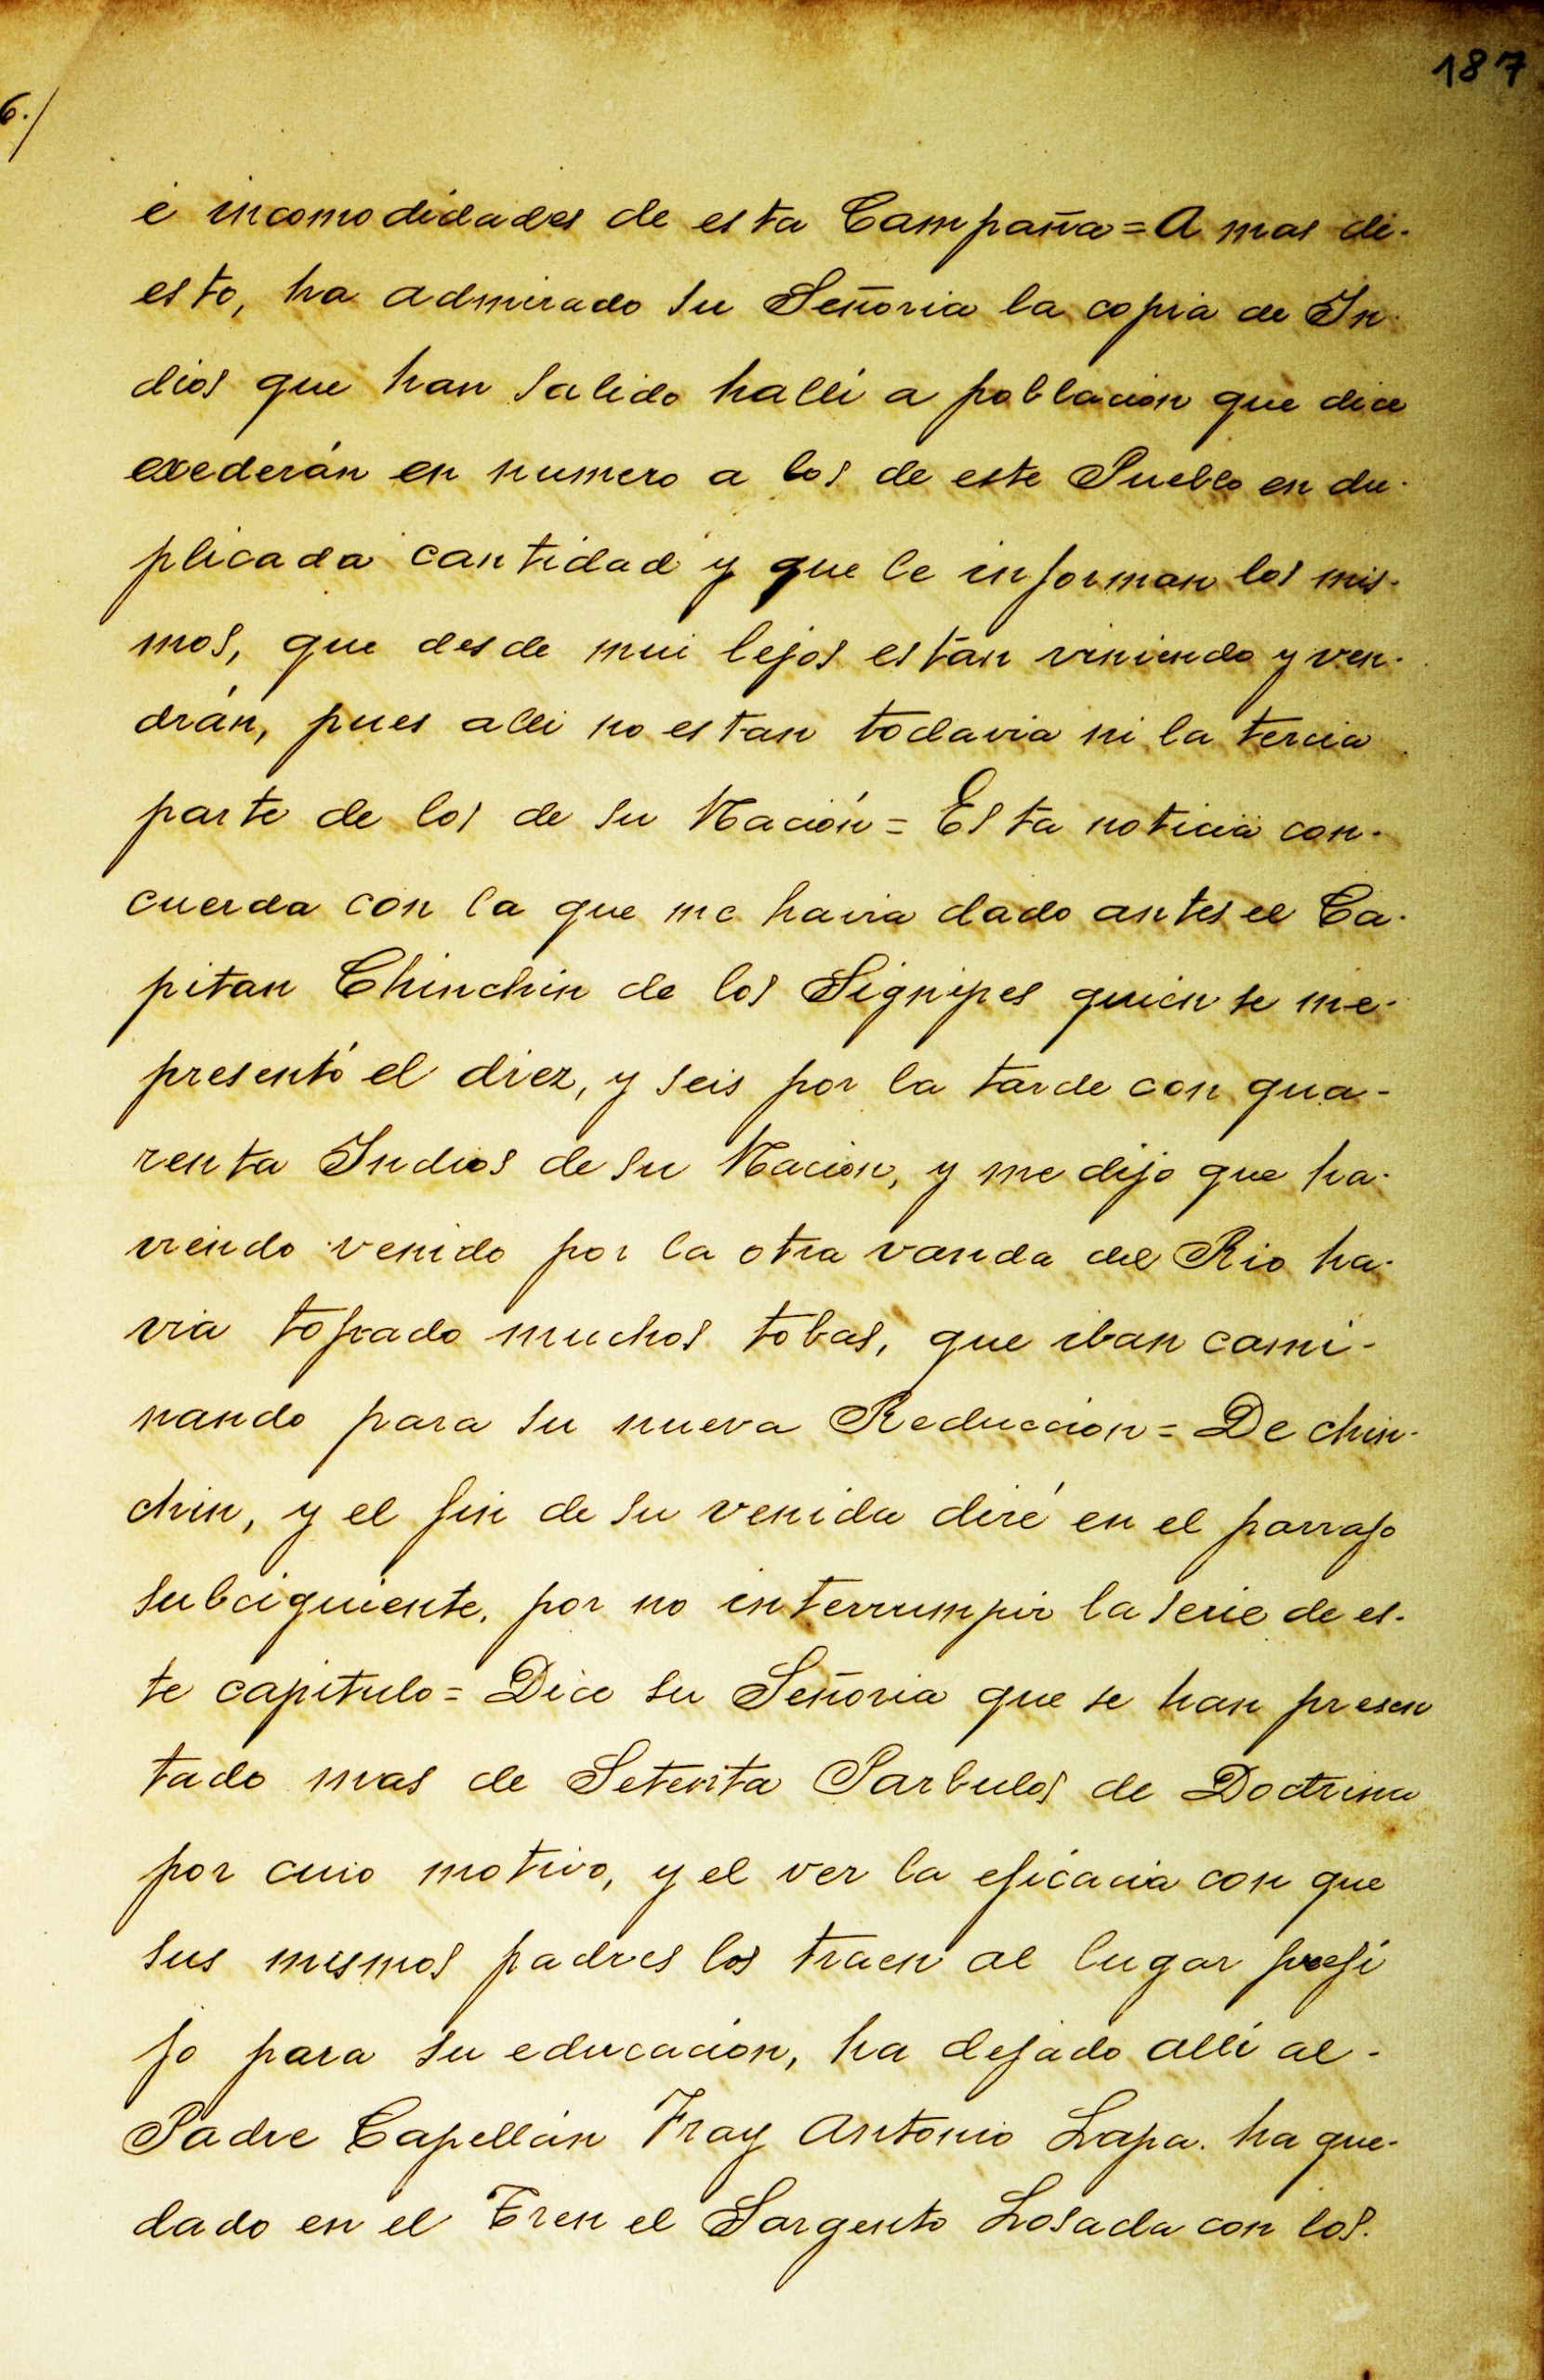 187
6./
é incomodidades de esta Campaña = A mas de-
esto, ha admirado su Señoria la copia de In-
dios que han salido halli a poblacion que dice
exederán en numero a los de este Pueblo en du-
plicada cantidad y que le informan los mis-
mos, que desde mui lejos están viniendo y ven-
drán, pues alli no estan todavia ni la tercia
parte de los de su Nación = Esta noticia con-
cuerda con la que me havia dado antes el Ca-
pitan Chinchin de los Signipes quien se me-
presentó el diez, y seis por la tarde con qua-
renta Indios de su Nacion, y me dijo que ha-
viendo venido por la otra vanda del Rio ha-
via topado muchos tobas, que iban cami-
nando para su nueva Reduccion = De chin-
chin, y el fin de su venida diré en el parrafo
subciguiente, por no interrumpir la serie de es-
te capitulo = Dice su Señoria que se han presen
tado mas de Setenta Parbulos de Doctrina
por cuio motivo, y el ver la eficacia con que
sus mismos padres los traen al lugar prefi
jo para su educación, ha dejado allí al-
Padre Capellán Fray Antonio Lapa. ha que-
dado en el Tren el Sargento Losada con los.